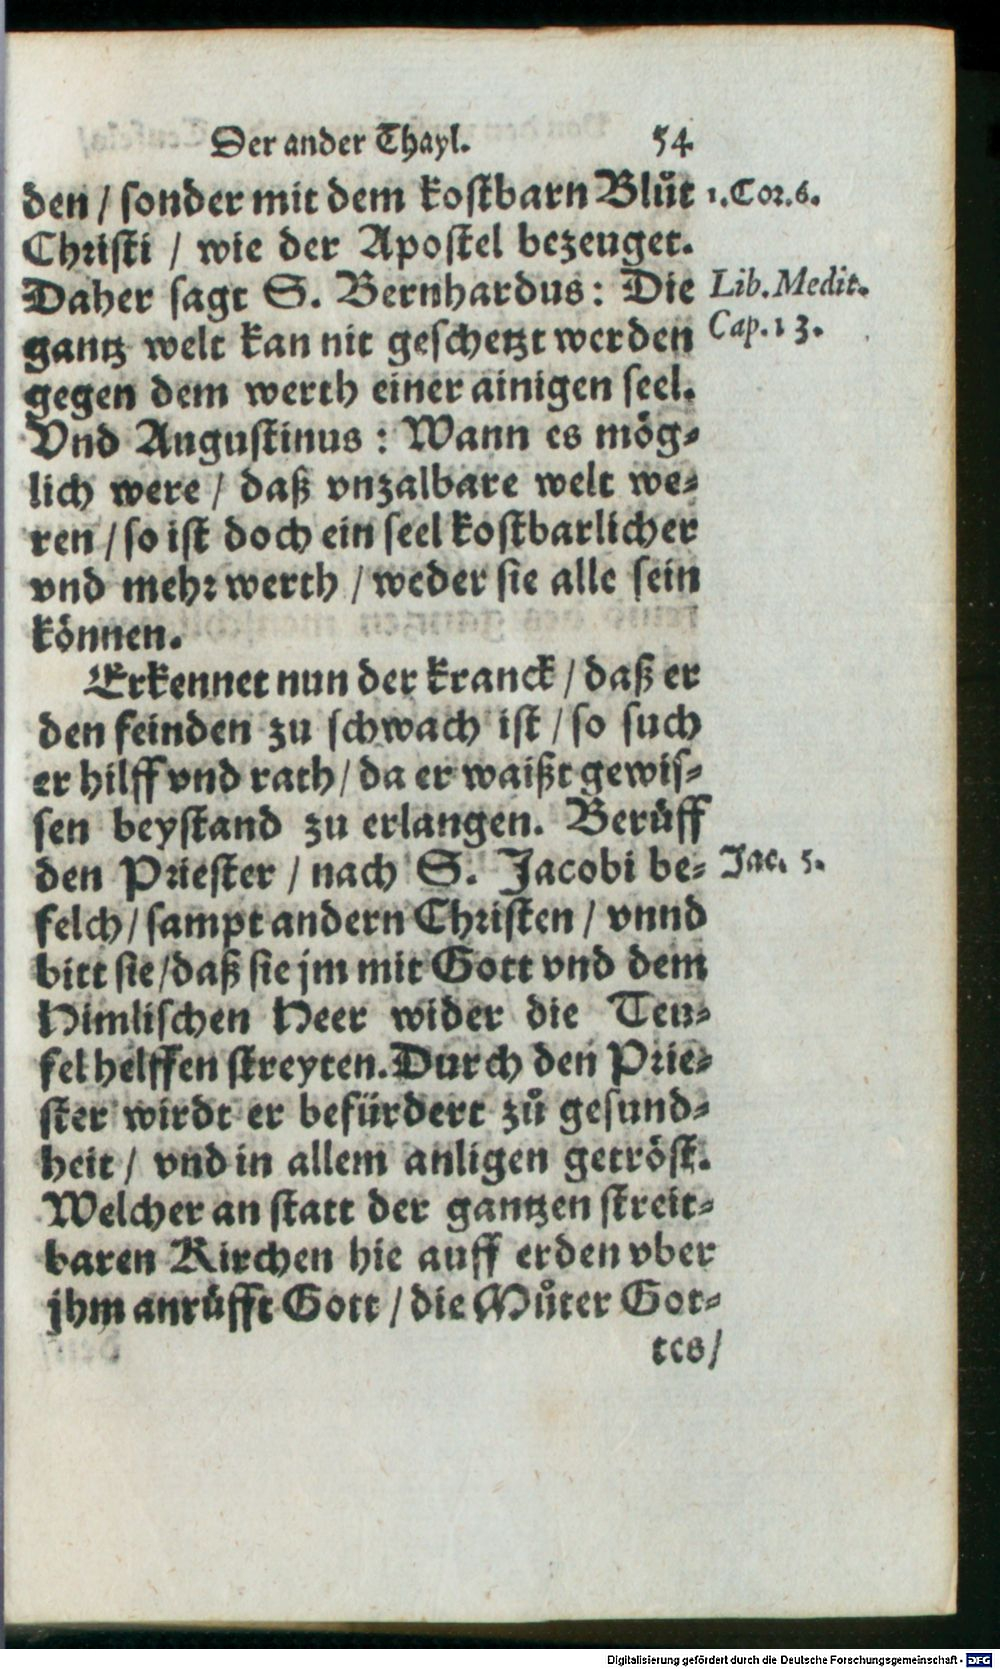 Der ander Thayl. 54
den / sonder mit dem kostbarn Blůt 1. Cor. 6.
Christi / wie der Apostel bezeuget.
Daher sagt S. Bernhardus: Die Lib. Medit.
gantz welt kan nit geschetzt werden Cap. 13.
gegen dem werth einer ainigen seel.
Vnd Augustinus: Wann es mög-
lich were / daß vnzalbare welt we-
ren / so ist doch ein seel kostbarlicher
vnd mehr werth / weder sie alle sein
können.
Erkennet nun der kranck / daß er
den feinden zu schwach ist / so such
er hilff vnd rath / da er waißt gewis-
sen beystand zu erlangen. Berüff
den Priester / nach S. Jacobi be- Jac. 5.
felch / sampt andern Christen / vnnd
bitt sie / daß sie jm mit Gott vnd dem
Himlischen Heer wider die Teu-
fel helffen streyten. Durch den Prie-
ster wirdt er befürdert zů gesund-
heit / vnd in allem anligen getröst.
Welcher an statt der gantzen streit-
baren Kirchen hie auff erden vber
jhm anrüfft Gott / die Můter Got-
tes /
Digitalisierung gefördert durch die Deutsche Forschungsgemeinschaft - DFG